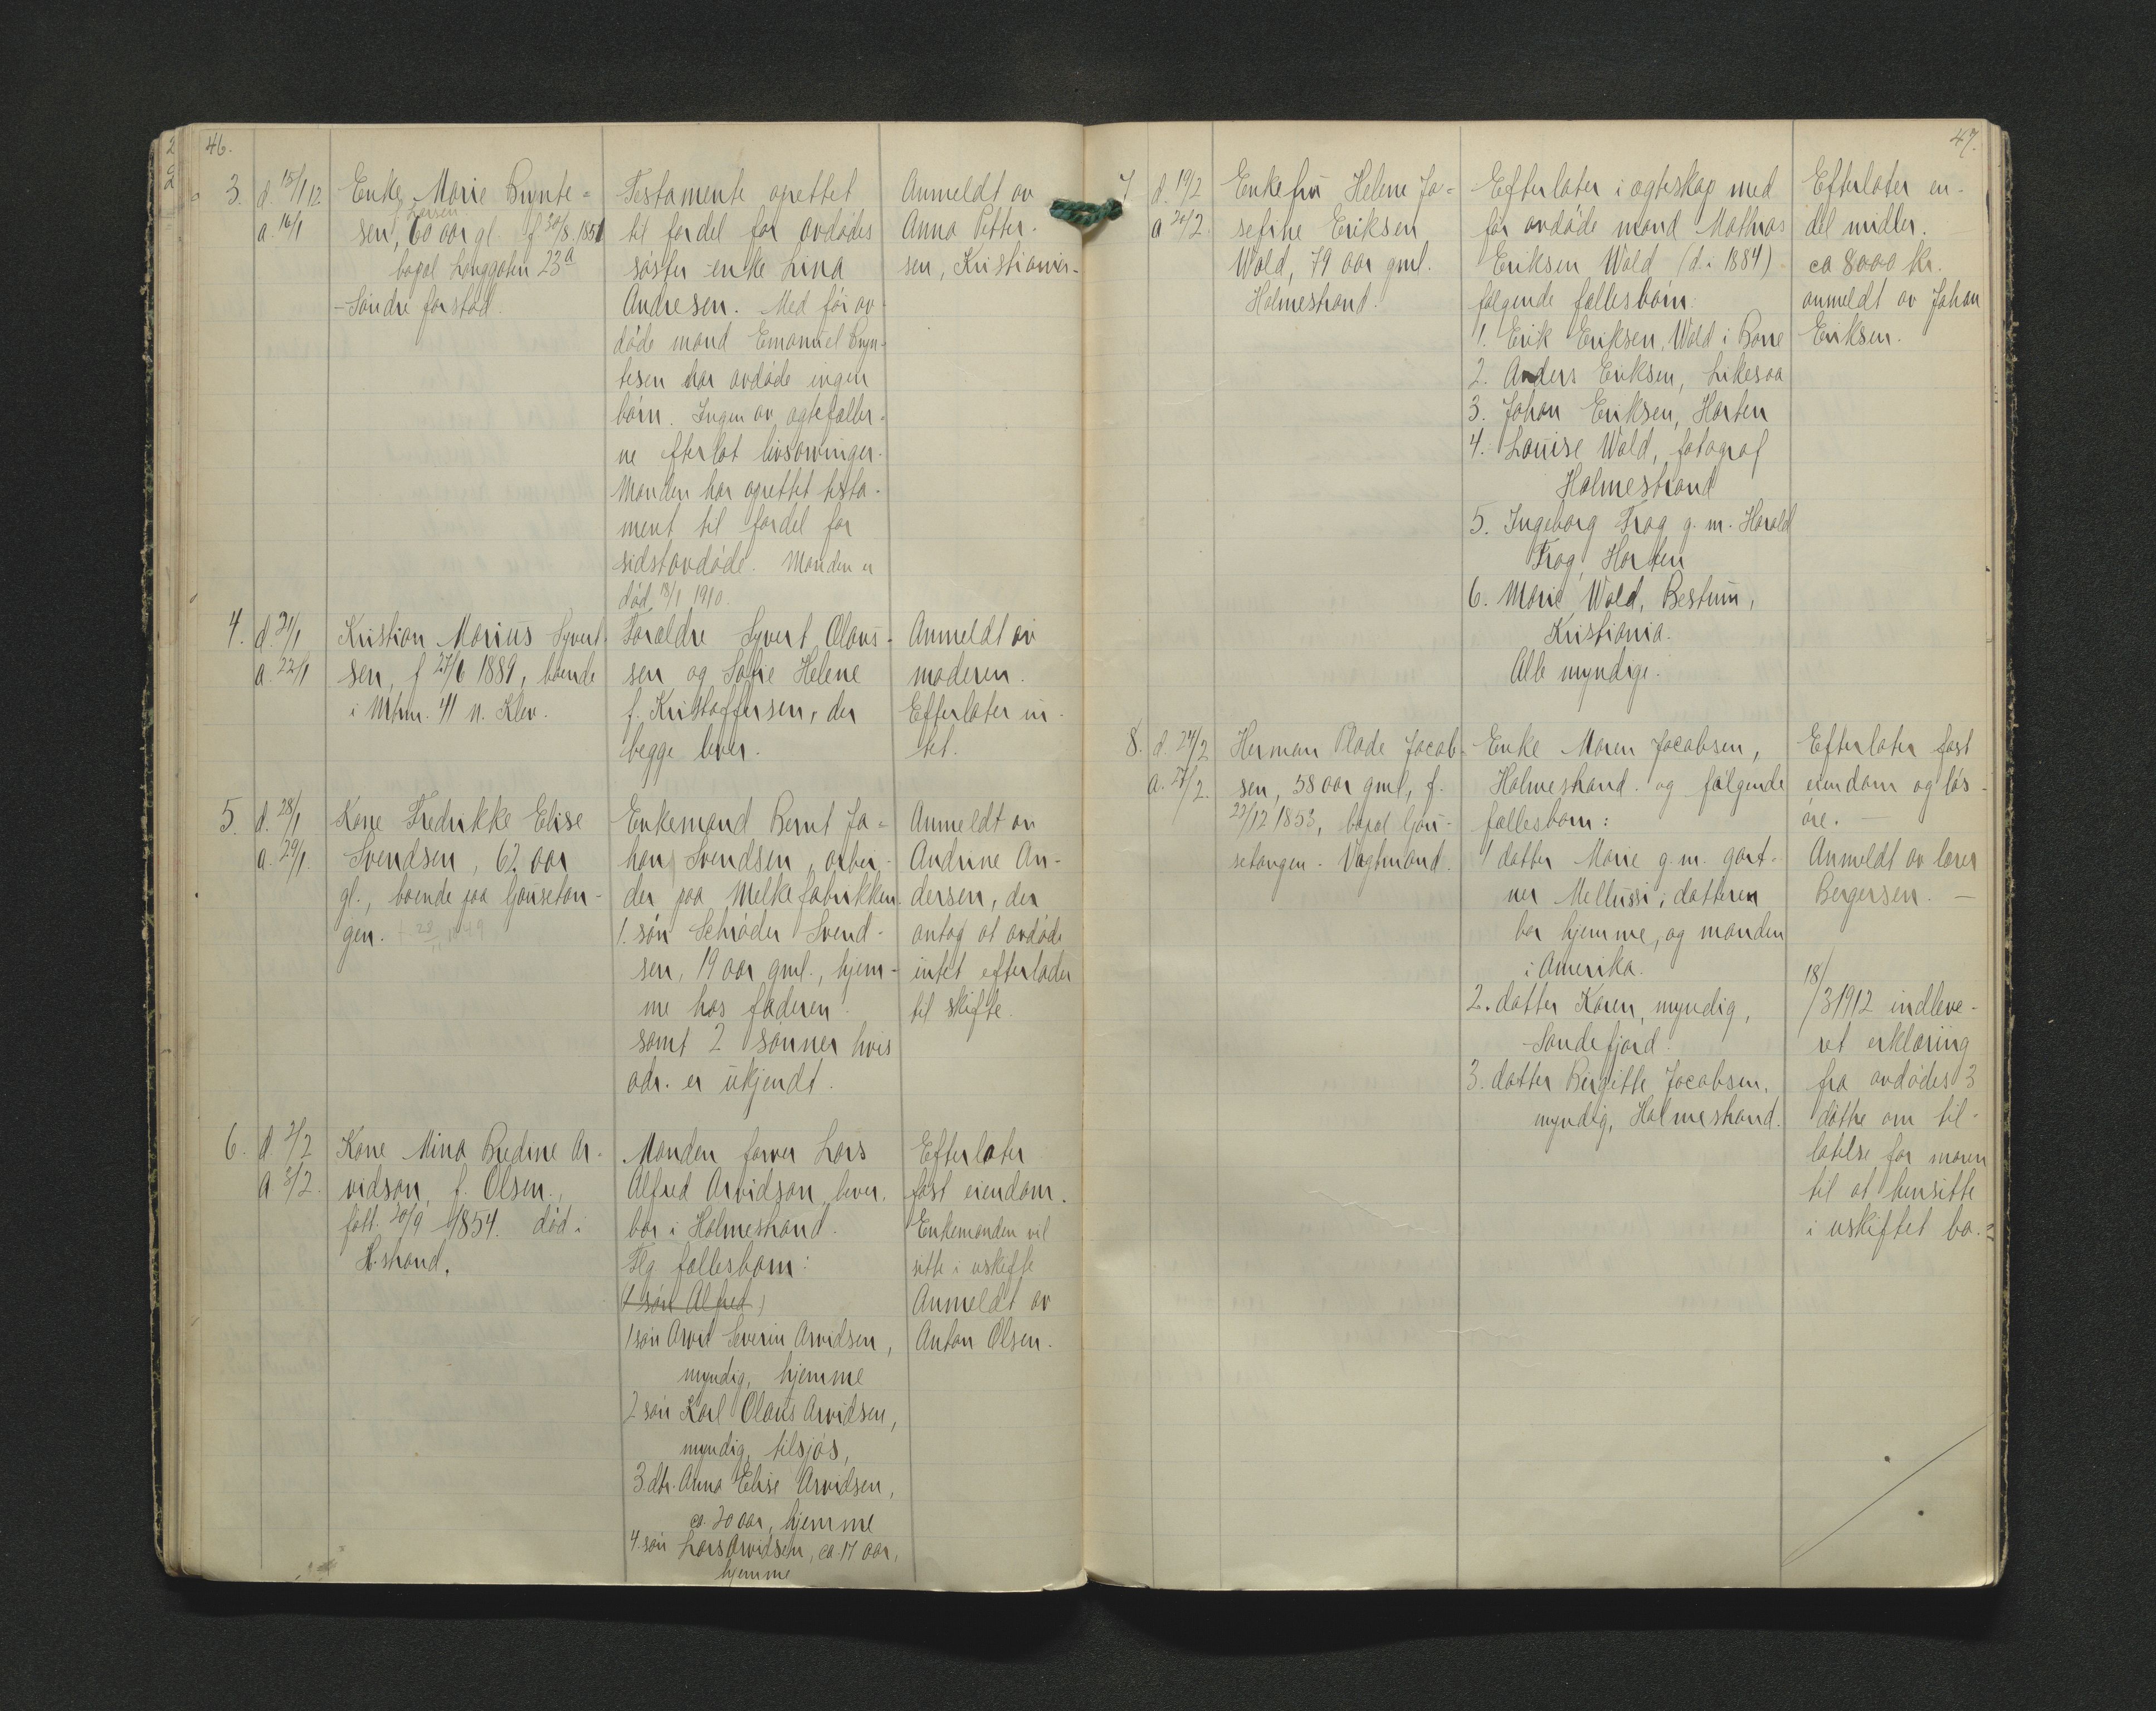 46.
3. d. 15/1 12.
a. 16/1
Enke Marie Bynte=
f. Larsen
sen, 60 aar gl. f 30/8. 1851
bopæl Langgaten 23a
- Søndre forstad.
Testamente oprettet
til fordel for avdødes
søster enke Lina
Andresen. Med før av-
døde mand Emanuel Byn-
tesen har avdøde ingen
børn. Ingen av ægtefæller-
ne efterlot livsarvinger.
Manden har oprettet testa-
ment til fordel for
sidstavdøde. Manden er
død 18/1 1910.
Anmeldt av
Anna Petter-
sen, Kristiania.
4. d. 21/1
a. 22/1
Kristian Marius Syvert-
sen, f 27/6 1889, boende
i Mtrn. 41 n. Klev.
Forældre Syvert Olaus-
sen og Sofie Helene
f. Kristoffersen, der
begge lever.
Anmeldt av
moderen.
Efterlater in-
tet.
5. d. 28/1
a. 29/1.
Kone Fredrikke Elise
Svendsen, 62 aar
gl., boende paa Gjøusetan-
gen.
Enkemand Bernt Jo=
han Svendsen, arbei-
der paa Melkefabrikken.
1. søn Schrøder Svend-
sen, 19 aar gml., hjem-
me hos faderen.
samt 2 sønner hvis
adr. er ukjendt.
Anmeldt av
Andrine An-
dersen, der
antog at avdøde
intet efterlader
til skifte.
6. d. 2/2
a 3/2.
Kone Mina Bredine Ar-
vidson, f. Olsen.,
født. 20/9 1854. død i
H.strand.
Manden farver Lars
Alfred Arvidson, lever.
bor i Holmestrand.
Flg fællesbarn:
(1 søn Alfred)
1 søn Arvid Severin Arvidsen,
myndig, hjemme
2 søn Karl Olaus Arvidsen,
myndig, tilsjøs,
3 dtr. Anna Elise Arvidsen,
ca. 20 aar, hjemme
4. søn Lars Arvidsen, ca. 17 aar,
hjemme
Efterlater
fast eiendom.
Enkemanden vil
sitte i uskifte
Anmeldt av
Anton Olsen.
47.
7 d. 19/2
a 20/2.
Enkefru Helene Jo=
sefine Eriksen
Wold, 79 aar gml.
Holmestrand.
Efterlater i ægteskap med
før avdøde mand Mathias
Eriksen Wold (d. i 1884)
følgende fællesbørn:
1. Erik Eriksen, Wold i Borre
2. Anders Eriksen, Likesaa
3. Johan Eriksen, Horten
4. Louise Wold, fotograf
Holmestrand
5. Ingeborg Frog g. m. Harald
Frog, Horten
6. Marie Wold, Bestum,
Kristiania.
Alle myndige.
Efterlater en-
del midler.
ca 8000 kr.
anmeldt av Johan
Eriksen.
8. d. 24/2
a. 27/2.
Herman Plade Jacob-
sen, 58 aar gml, f.
22/12 1853, bopæl Gjøu-
setangen. Vægtmand.
Enke Maren Jacobsen,
Holmestrand. og følgende
fællesbarn:
1 datter Marie g. m. gart-
ner Mellussi; datteren
bor hjemme, og manden
i Amerika.
2. datter Karen, myndig,
Sandefjord.
3. datter Birgitte Jacobsen.
myndig, Holmestrand.
Efterlater fast
eiendom og løs-
øre. -
Anmeldt av lærer
Bergersen. -
18/
/3 1912 indleve-
ret erklæring
fra avdødes 3
døtre om til-
latelse for moren
til at hensitte
i uskiftet bo.=